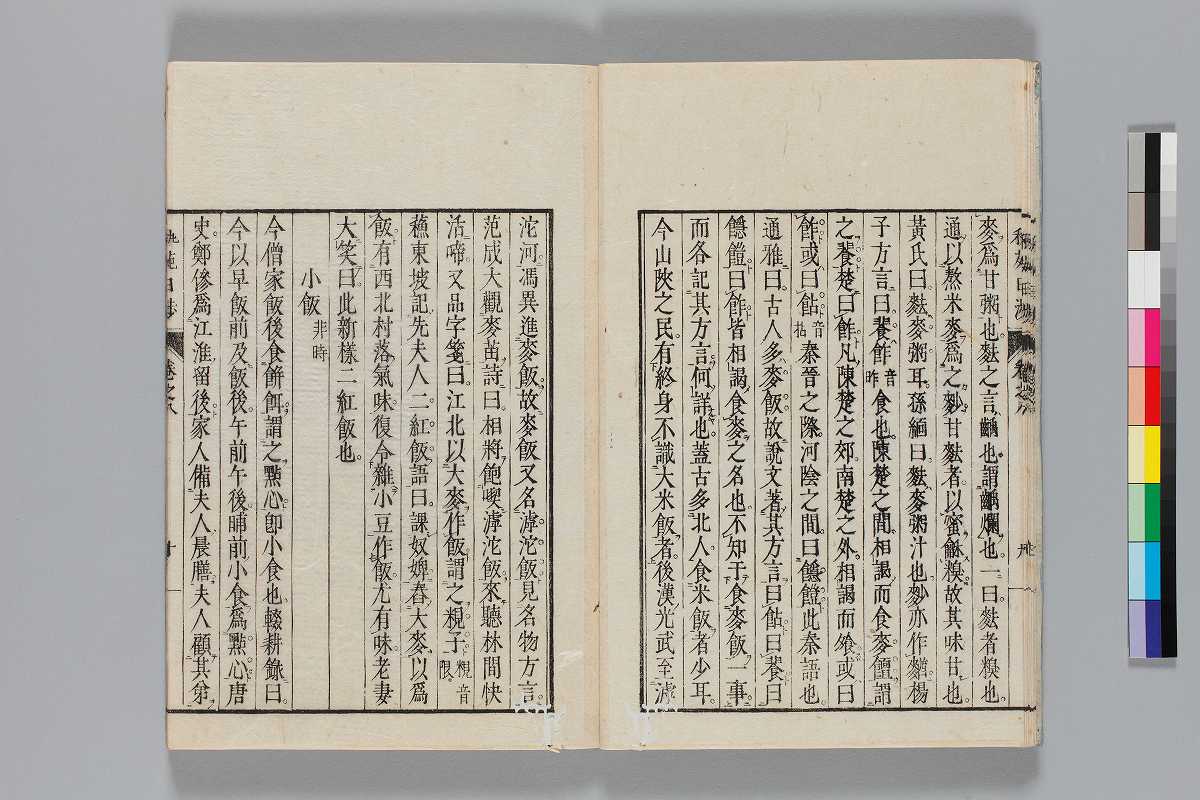 麥爲甘粥也麩之言齲也謂齲爛也一曰麩者糗也
通以熬米麥爲之麨甘麩者以蜜龢糗故其味甘也
黃氏曰麩麥粥耳孫緬曰麩麥粥汁也麨亦作䴬楊
子方言曰䬶飵音昨食也陳楚之間相謁而食麥饘謂
之䬶楚曰飵凡陳楚之郊南楚之外相謁而飧或曰
飵或曰䬯音拈秦晉之際河陰之間曰䭡䭓此秦語也
通雅曰古人多麥飯故說文著其方言曰䬯曰䬶曰
䭡䭓曰飵皆相謁食麥之名也不知于食麥飯一事
而各記其方言何詳也蓋古多北人食米飯者少耳
今山陜之民有終身不識大米飯者後漢光武至滹
沱河馮異進麥飯故麥飯又名滹沱飯見名物方言
范成大觀麥苗詩曰相將飽喫滹沱飯來聽林間快
活啼又品字箋曰江北以大麥作飯謂之䊐子䊐音限
蘓東坡記先夫人二紅飯語曰課奴婢舂大麥以爲
飯有西北村落氣味復令雜小豆作飯尤有味老妻
大笑曰此新樣二紅飯也
小飯非時
今僧家飯後食餠餌謂之點心卽小食也輟耕錄曰
今以早飯前及飯後午前午後晡前小食爲點心唐
史鄭傪爲江淮留後家人備夫人晨膳夫人顧其弟
卷之八
十